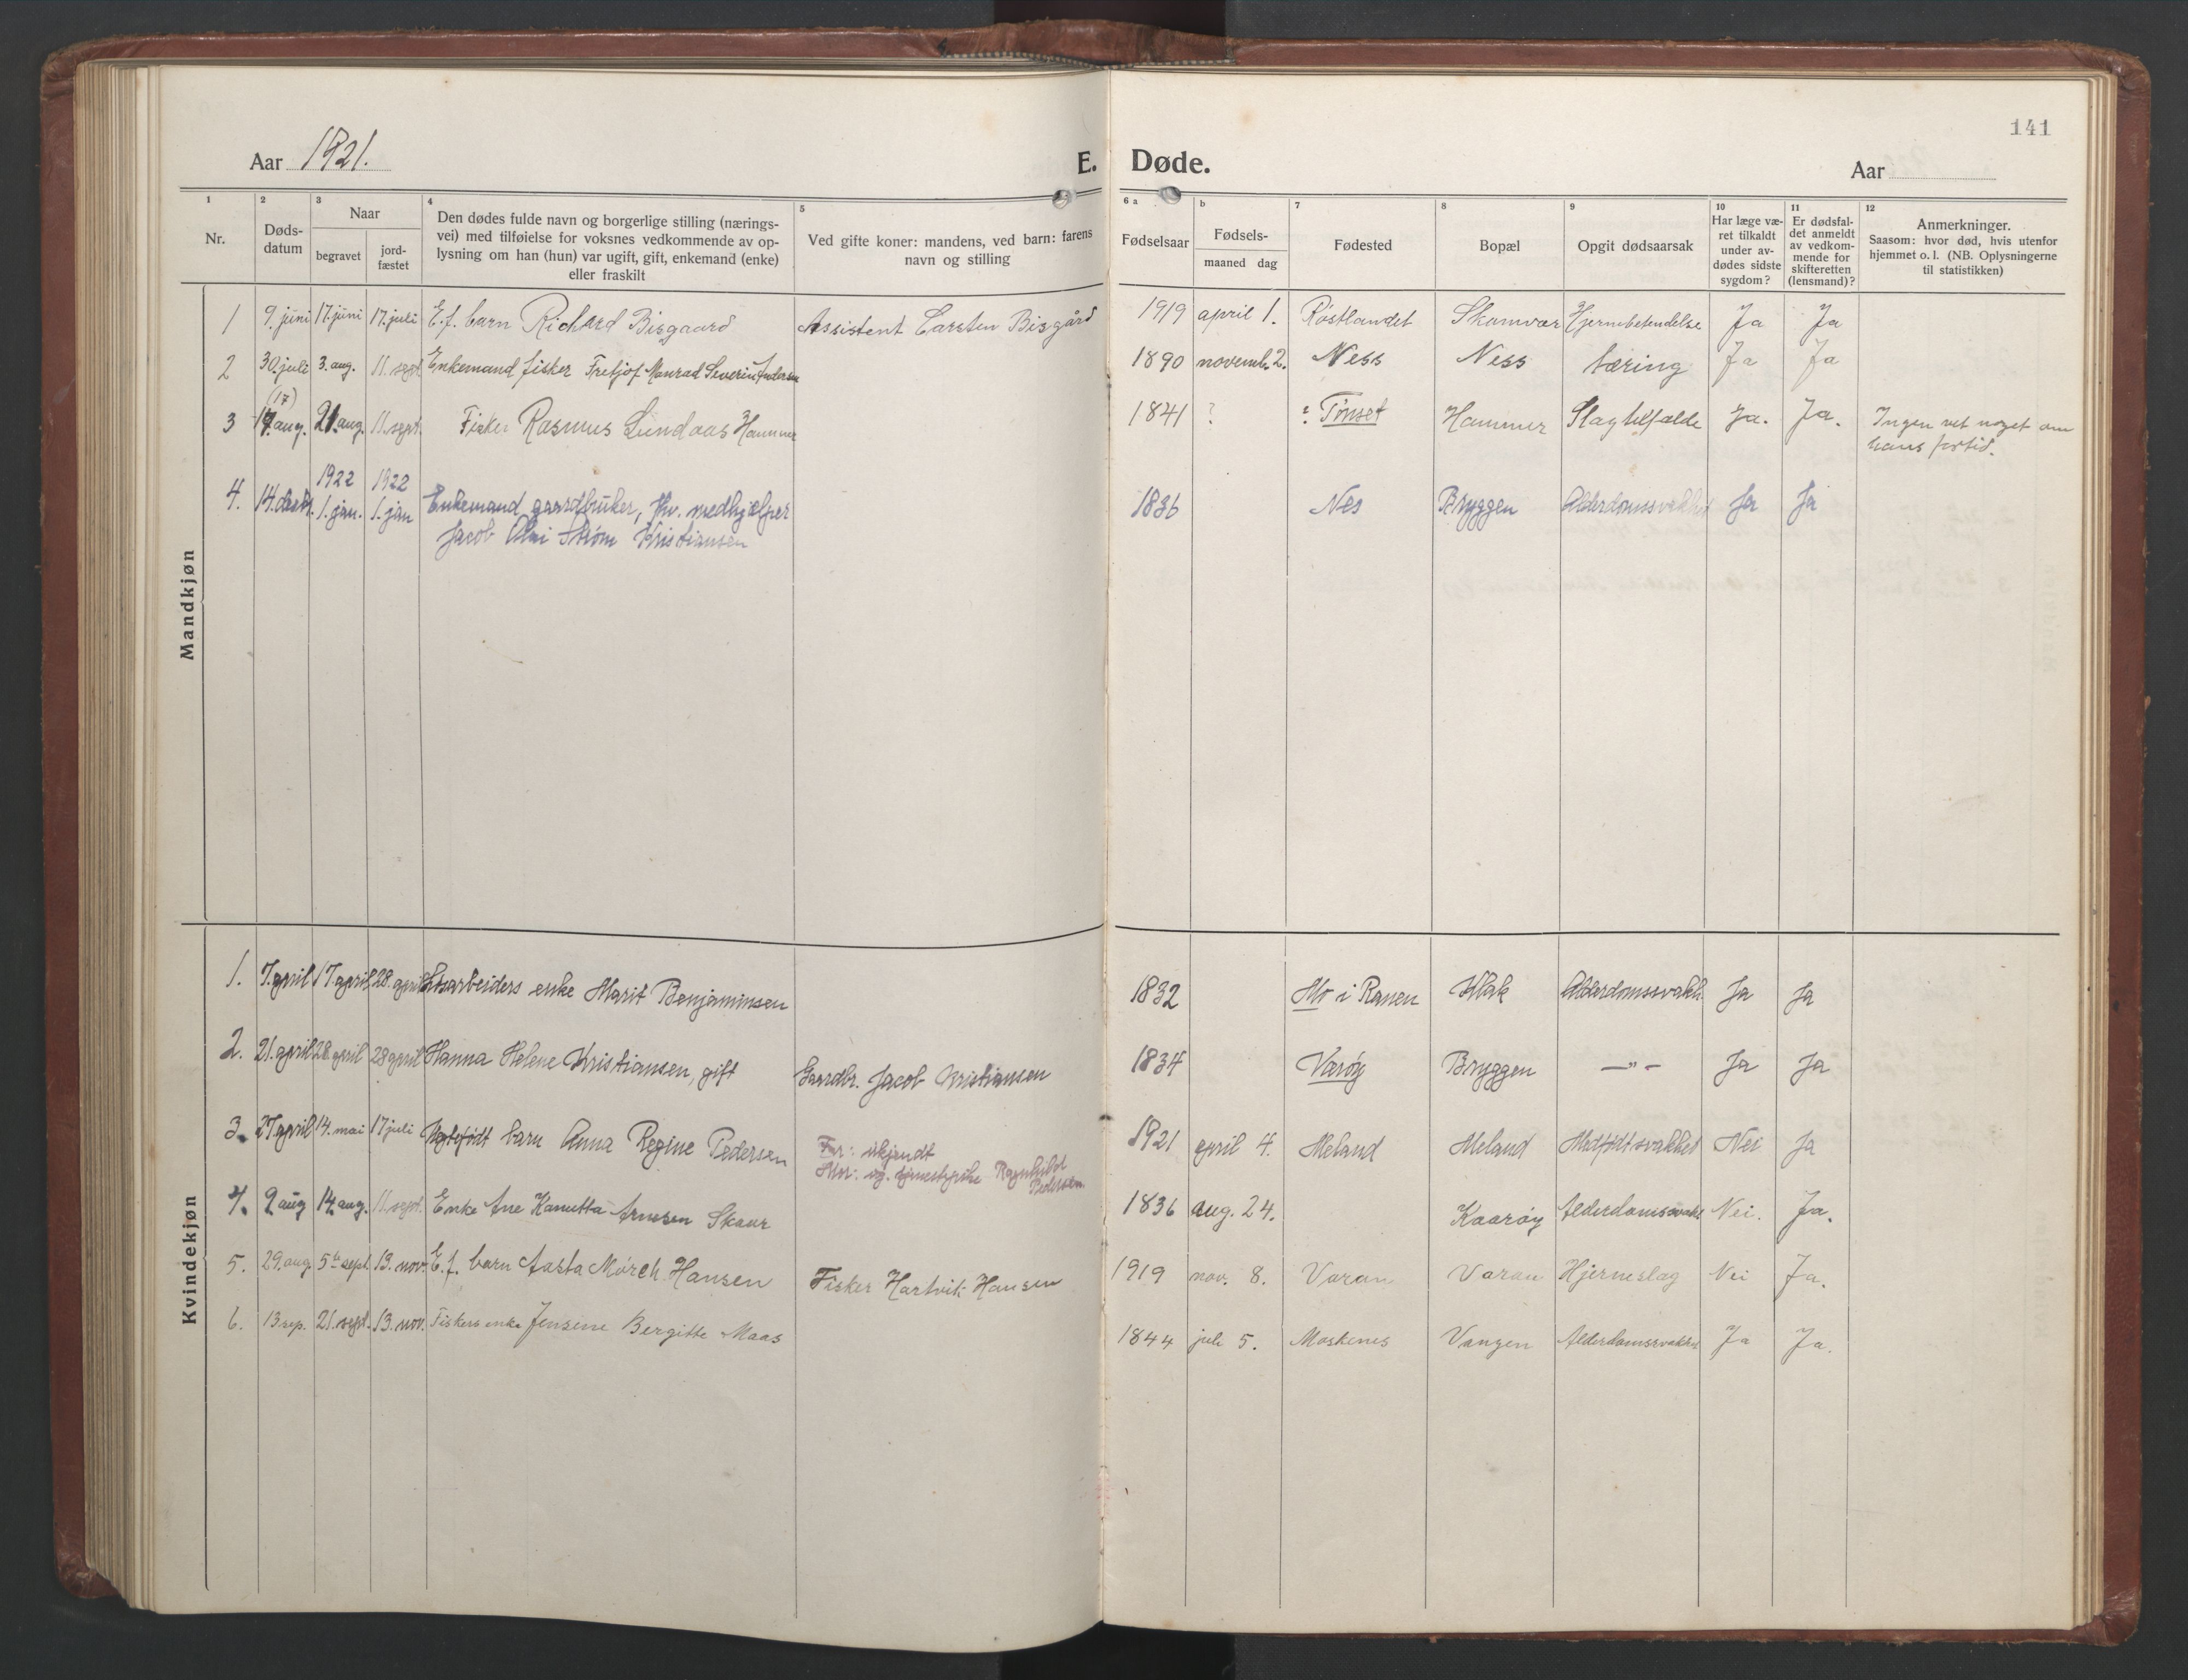 141
Aar 1921.
E. Døde.
Aar
1 2 3 4 5 6 a b 7 8 9 10 11 12
Nr.
Døds-
datum
Naar
begravet
jord-
fæstet
Den dødes fulde navn og borgerlige stilling (nærings-
vei) med tilføielse for voksnes vedkommende av op-
lysning om han (hun) var ugift, gift, enkemand (enke)
eller fraskilt
Ved gifte koner: mandens, ved barn: farens
navn og stilling
Fødselsaar
Fødsels-
maaned dag
Fødested
Bopæl
Opgit dødsaarsak
Har læge væ-
ret tilkaldt
under av-
dødes sidste
sygdom?
Er dødsfal-
det anmeldt
av vedkom-
mende for
skifteretten
(lensmand)?
Anmerkninger.
Saasom: hvor død, hvis utenfor
hjemmet o. l. (NB. Oplysningerne
til statistikken)
Mandkjøn
1 9. juni 17. juni 17. juli E. f. barn Richard Bisgaard Assistent Carsten Bisgård 1919 april 1. Røstlandet Skomvær Hjernebetendelse Ja Ja
2 30. juli 3. aug. 11. sept. Enkemand fisker Fretjof Monrad Severin Andersen 1890 novemb. 2. Ness Ness tæring Ja Ja
(17)
3 aug. 21. aug. 11. sept. Fisker Rasmus Lundaas Hammer 1841 ? ? Tønset Hammer Slagtilfælde Ja. Ja. Ingen vet noget om
hans fortid.
1922 1922
4. 14. 1. jan. 1. jan Enkemand gaardbruker, fhv. medhjælper 1836 Nes Bryggen Alderdomssvakhet Ja Ja
Jacob Strøm Kristiansen
Kvindekjøn
1. 7. april 17. april 28. april enke Marit Benjaminsen 1832 Mo i Ranen Klak Alderdomssvakh. Ja Ja
2. 21. april 28. april 28 april Hanna Helene Kristiansen, gift Gaardbr. Jacob Kristiansen 1834 Værøy Bryggen —"— Ja Ja
3. 27 april 14. mai 17 juli Uegtefødt barn Anna Regine Pedersen Far: ukjendt 1921 april 4. Meland Meland Medfødt svakhet Nei Ja
Mor: ug. tjenestepike Ragnhild
Pedersen.
4. 9. aug 14. aug. 11. sept. Enke Ane Kanutta Arnesen Skaar 1836 aug. 24. Kaarøy Alderdomssvakh Nei. Ja.
5. 29. aug. 5te sept. 13. nov. E. f. barn Aasta Mørch Hansen Fisker Hartvik Hansen 1919 nov. 8. Varan Varan Hjerneslag Nei Ja.
6. 13 sep. 21. sept. 13. nov. Fiskers enke Jensine Bergitte Maas 1844 juli 5. Moskenes Vangen Alderdomssvakhet Ja Ja.